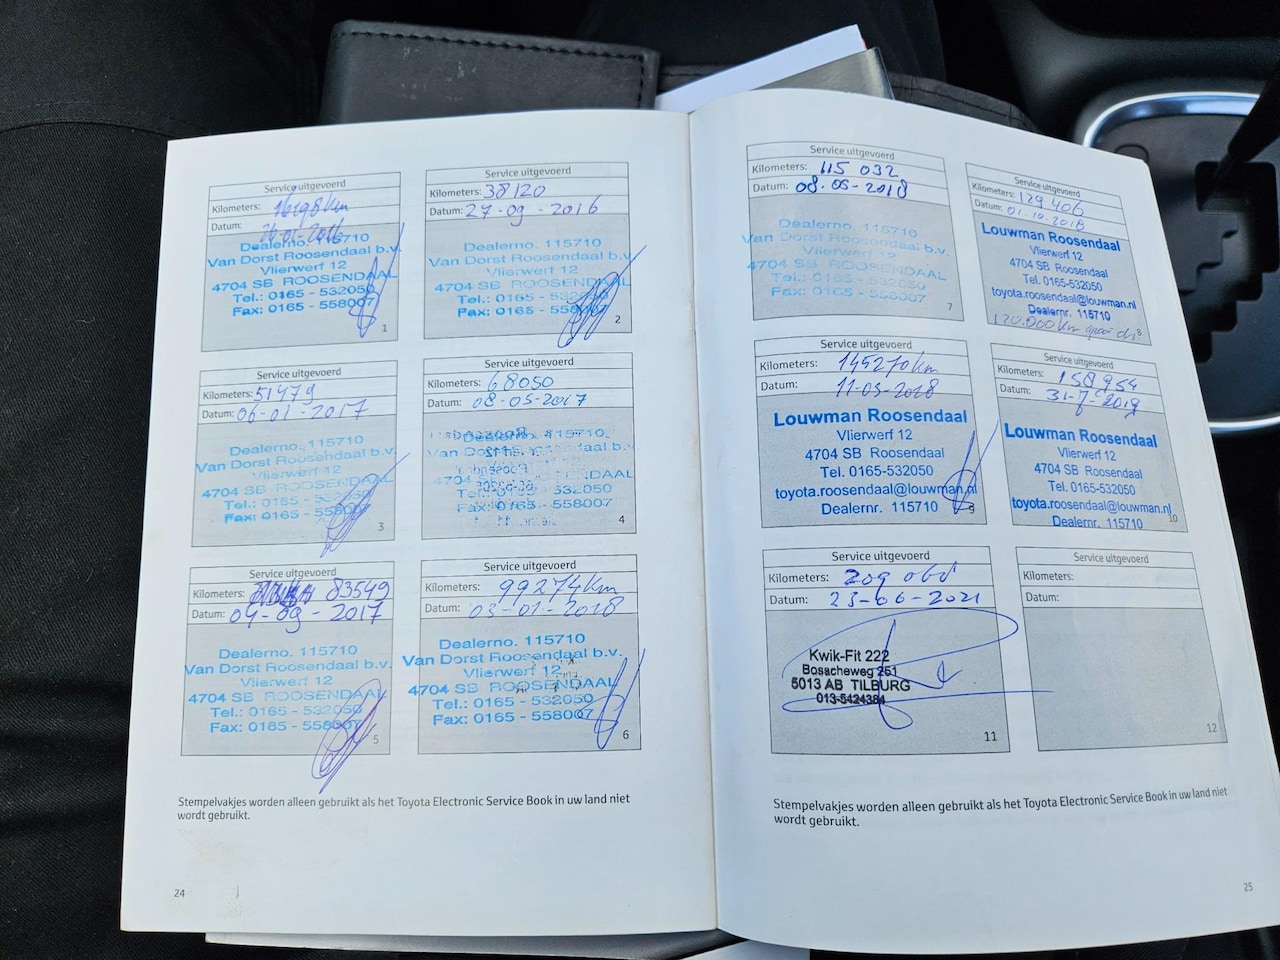 Service uitgevoerd
Kilometers: 16198 km
Datum: 26-01-2016
Dealerno. 115710
Van Dorst Roosendaal b.v.
Vlierwerf 12
4704 SB ROOSENDAAL
Tel.: 0165 - 532050
Fax: 0165 - 558007
1
Service uitgevoerd
Kilometers: 38120
Datum: 27-09-2016
Dealerno. 115710
Van Dorst Roosendaal b.v.
Vlierwerf 12
4704 SB ROOSENDAAL
Tel.: 0165 - 532050
Fax: 0165 - 558007
2
Service uitgevoerd
Kilometers: 51479
Datum: 06-01-2017
Dealerno. 115710
Van Dorst Roosendaal b.v.
Vlierwerf 12
4704 SB ROOSENDAAL
Tel.: 0165 - 532050
Fax: 0165 - 558007
3
Service uitgevoerd
Kilometers: 68050
Datum: 08-05-2017
Dealerno. 115710
Van Dorst Roosendaal b.v.
4704 SB ROOSENDAAL
Tel.: 0165 - 532050
Fax: 0165 - 558007
4
Service uitgevoerd
Kilometers: 83549
Datum: 04-09-2017
Dealerno. 115710
Van Dorst Roosendaal b.v.
Vlierwerf 12
4704 SB ROOSENDAAL
Tel.: 0165 - 532050
Fax: 0165 - 558007
5
Service uitgevoerd
Kilometers: 99274 km
Datum: 03-01-2018
Dealerno. 115710
Van Dorst Roosendaal b.v.
Vlierwerf 12
4704 SB ROOSENDAAL
Tel.: 0165 - 532050
Fax: 0165 - 558007
6
Stempelvakjes worden alleen gebruikt als het Toyota Electronic Service Book in uw land niet
wordt gebruikt.
24
Service uitgevoerd
Kilometers: 115 032
Datum: 08-05-2018
Dealerno. 115710
Van Dorst Roosendaal b.v.
Vlierwerf 12
4704 SB ROOSENDAAL
Tel.: 0165 - 532050
Fax: 0165 - 558007
7
Service uitgevoerd
Kilometers: 129.406
Datum: 01.10.2018
Louwman Roosendaal
Vlierwerf 12
4704 SB Roosendaal
Tel. 0165-532050
toyota.roosendaal@louwman.nl
Dealernr. 115710
120.000 km
8
Service uitgevoerd
Kilometers: 145270 km
Datum: 11-03-2018
Louwman Roosendaal
Vlierwerf 12
4704 SB Roosendaal
Tel. 0165-532050
toyota.roosendaal@louwman.nl
Dealernr. 115710
9
Service uitgevoerd
Kilometers: 158954
Datum: 31-7-2019
Louwman Roosendaal
Vlierwerf 12
4704 SB Roosendaal
Tel. 0165-532050
toyota.roosendaal@louwman.nl
Dealernr. 115710
10
Service uitgevoerd
Kilometers: 209
Datum: 23-06-2021
Kwik-Fit 222
Bosscheweg 251
5013 AB TILBURG
013-5424384
11
Service uitgevoerd
Kilometers:
Datum:
12
Stempelvakjes worden alleen gebruikt als het Toyota Electronic Service Book in uw land niet
wordt gebruikt.
25